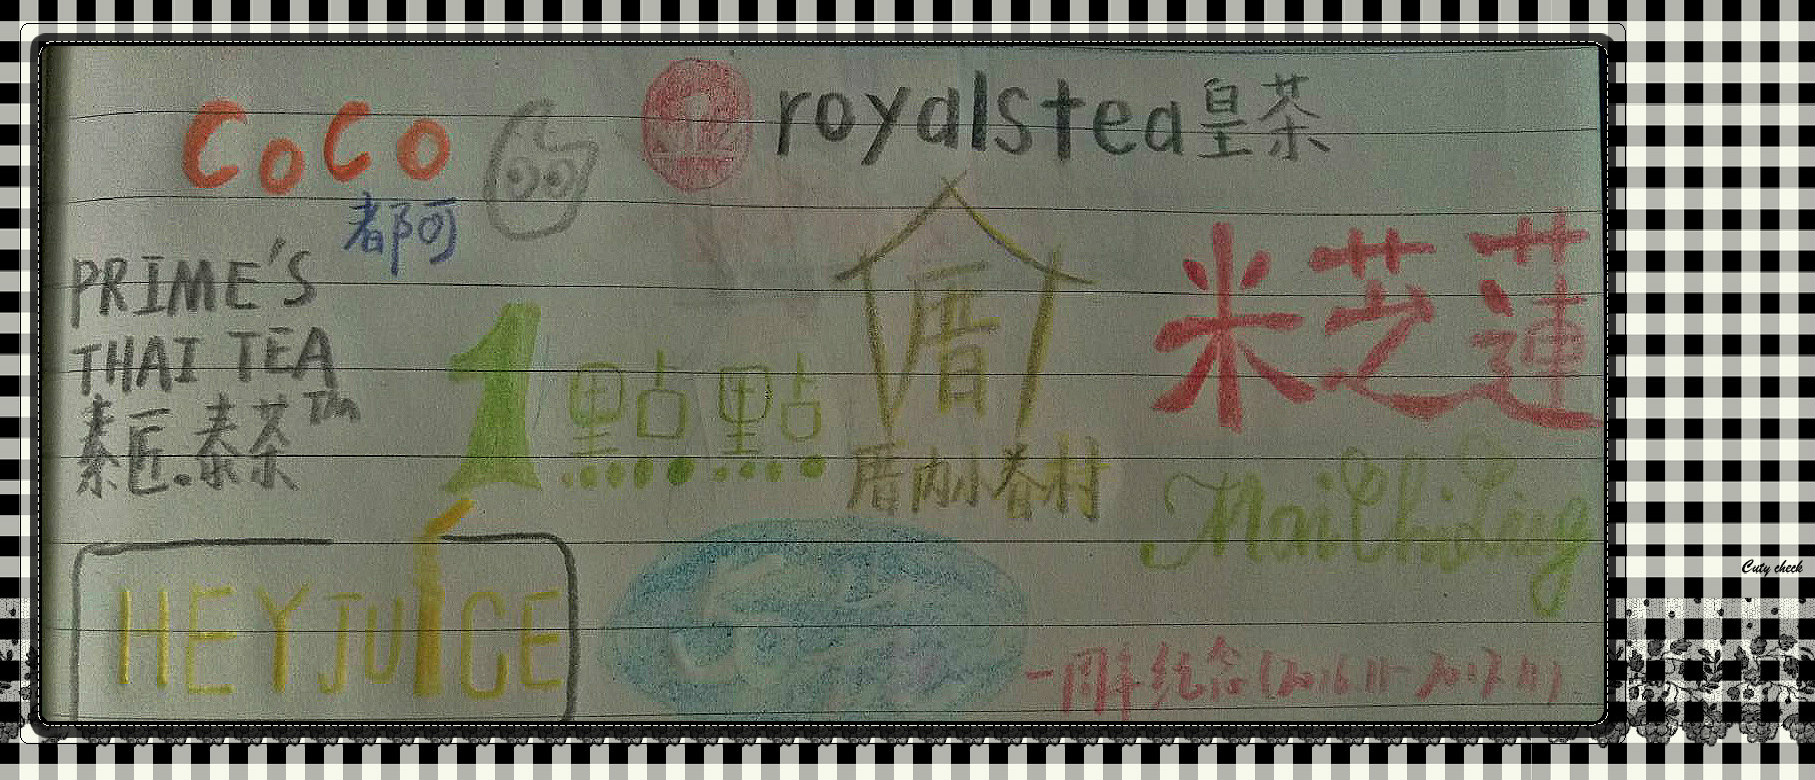 CoCo
都可
royalstea皇茶
PRIME'S
THAI TEA
泰匠.泰茶™
1點點
厝
厝内小眷村
米芝蓮
MaiChiLing
HEYJUICE
一周年纪念(2016.11-2017.11)
Cuty check